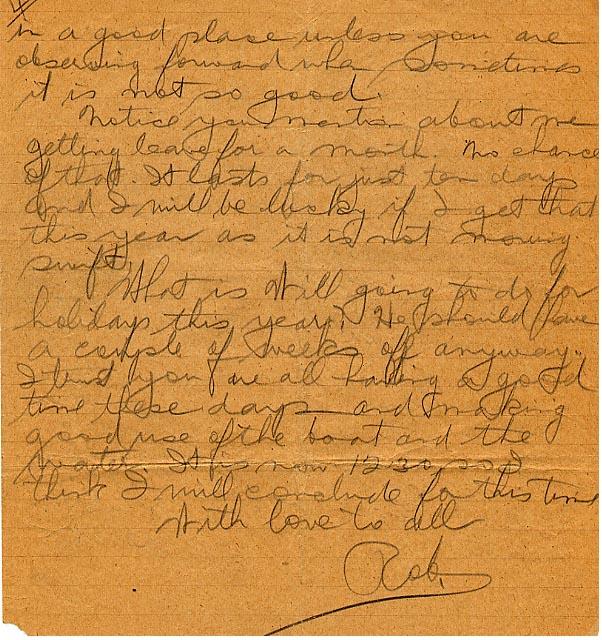 in a good place unless you are
observing forward when sometimes
it is not so good.
Notice you mention about me
getting leave for a month. No chance
of that. It lasts for just ten days
and I will be lucky if I get that
this year as it is not moving
swift.
What is Will going to do for
holidays this year? He should have
a couple of weeks off anyway.
I trust you are all having a good
time these days and making
good use of the boat and the
water. It is now 12 30 so I
think I will conclude for this time
With love to all
Rob.